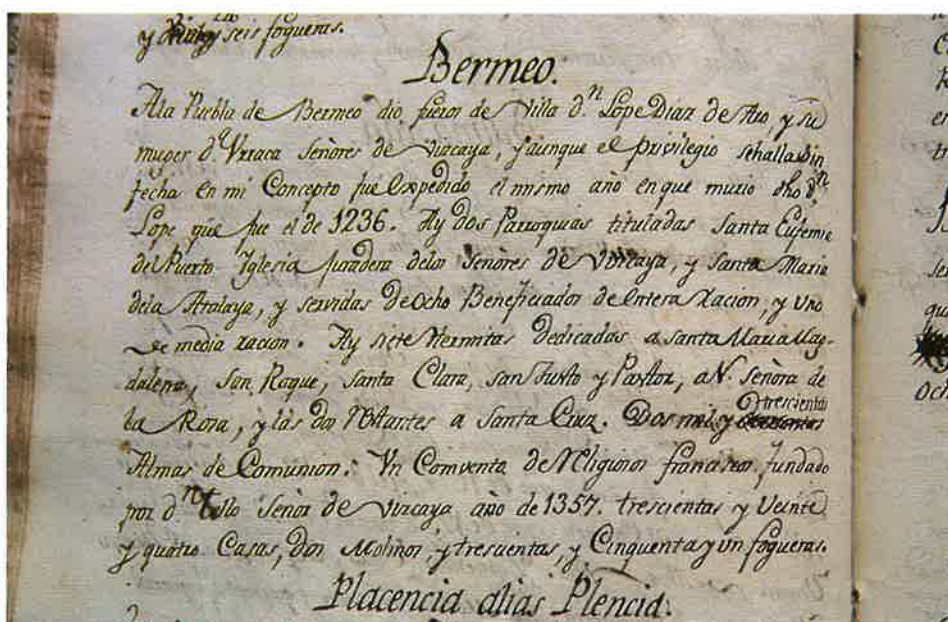 y seis fogueras.
Bermeo.
A la Puebla de Bermeo dio fueros de Villa d.n Lope Diaz de Aro, y su
muger d.a Vrraca Señores de Vizcaya, y aunque el privilegio se halla sin
fecha en mi Concepto fue expedido el mismo año en que murio dho d.n
Lope que fue el de 1236. Ay dos Parroquias tituladas Santa Eufemia
del Puerto Iglesia juradera delos Señores de Vizcaya, y Santa Maria
dela Atalaya, y servidas de ocho Beneficiados de entera racion, y Uno
de media racion. Ay siete Hermitas Dedicadas a Santa Maria Mag-
dalena, San Roque, Santa Clara, san Justo y Pastor, a N. Señora de
la Rosa, y las dos restantes a Santa Cruz. Dos mil y trescientas
Almas de Comunion. Vn Comvento de Religiosos franciscos, fundado
por d.n Tello Señor de Vizcaya año de 1357. trescientas y Veinte
y quatro Casas, dos Molinos, y trescientas, y Cinquenta y un fogueras.
Placencia alias Plencia.